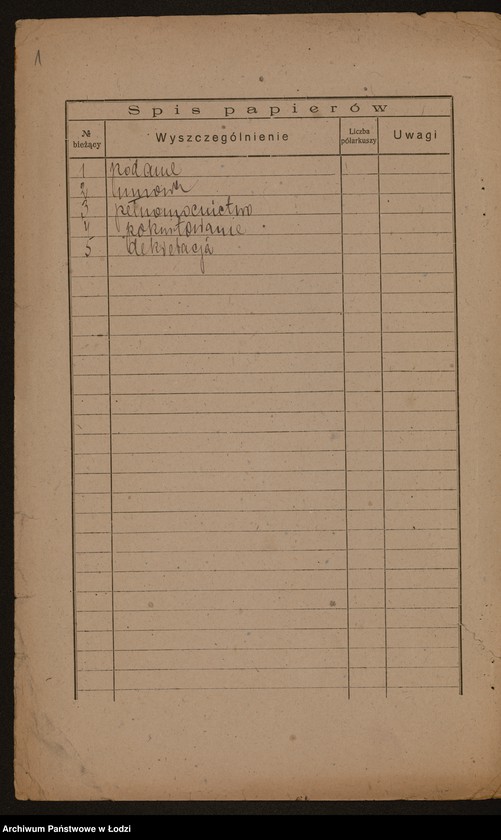 1
Spis papierów
№ bieżący Wyszczególnienie Liczba półarkuszy Uwagi
1 podanie
2 umowa
3 pełnomocnictwo
4 pokwitowanie
5 dekretacja
Archiwum Państwowe w Łodzi